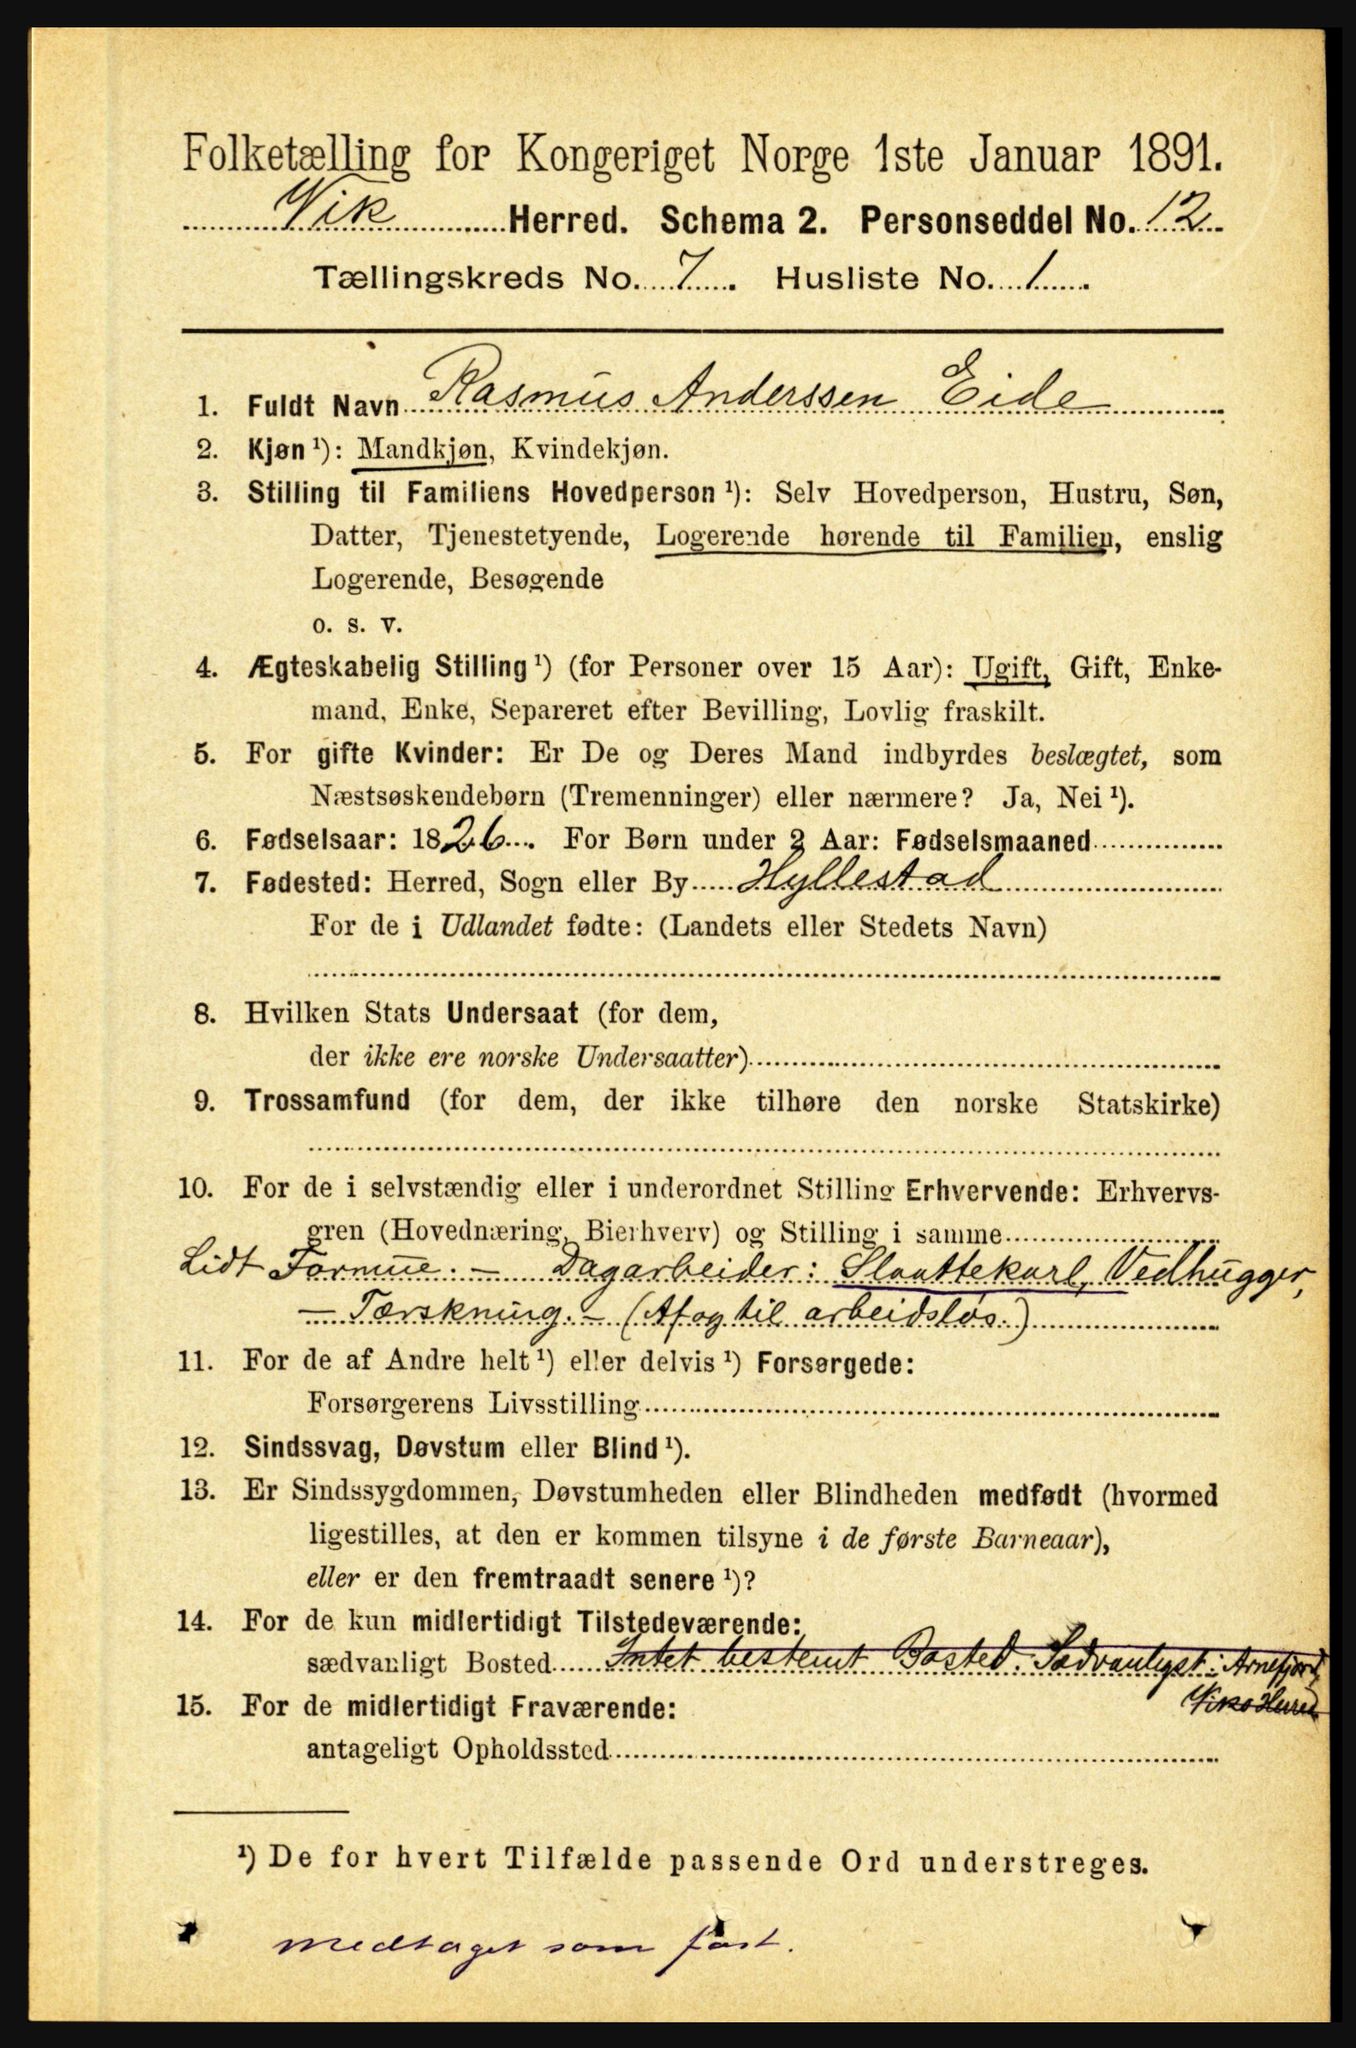 Folketælling for Kongeriget Norge 1ste Januar 1891.
Vik Herred. Schema 2. Personseddel No. 12
Tællingskreds No. 7. Husliste No. 1.
1. Fuldt Navn Rasmus Anderssen Eide
2. Kjøn¹): Mandkjøn, Kvindekjøn.
3. Stilling til Familiens Hovedperson¹): Selv Hovedperson, Hustru, Søn,
Datter, Tjenestetyende, Logerende hørende til Familien, enslig
Logerende, Besøgende
o. s. v.
4. Ægteskabelig Stilling¹) (for Personer over 15 Aar): Ugift, Gift, Enke-
mand, Enke, Separeret efter Bevilling, Lovlig fraskilt.
5. For gifte Kvinder: Er De og Deres Mand indbyrdes beslægtet, som
Næstsøskendebørn (Tremenninger) eller nærmere? Ja, Nei¹).
6. Fødselsaar: 1826. For Børn under 2 Aar: Fødselsmaaned
7. Fødested: Herred, Sogn eller By Hyllestad
For de i Udlandet fødte: (Landets eller Stedets Navn)
8. Hvilken Stats Undersaat (for dem,
der ikke ere norske Undersaatter)
9. Trossamfund (for dem, der ikke tilhøre den norske Statskirke)
10. For de i selvstændig eller i underordnet Stilling Erhvervende: Erhvervs-
gren (Hovednæring, Bierhverv) og Stilling i samme
Lidt Formue. — Dagarbeider: Slaattekarl, Vedhugger,
— Tærskning. — (Af og til arbeidsløs.)
11. For de af Andre helt¹) eller delvis¹) Forsørgede:
Forsørgerens Livsstilling
12. Sindssvag, Døvstum eller Blind¹).
13. Er Sindssygdommen, Døvstumheden eller Blindheden medfødt (hvormed
ligestilles, at den er kommen tilsyne i de første Barneaar),
eller er den fremtraadt senere¹)?
14. For de kun midlertidigt Tilstedeværende:
sædvanligt Bosted Intet bestemt Bosted. Sædvanligst: Arnefjord
Viks Herred
15. For de midlertidigt Fraværende:
antageligt Opholdssted
¹) De for hvert Tilfælde passende Ord understreges.
medtaget som fast.